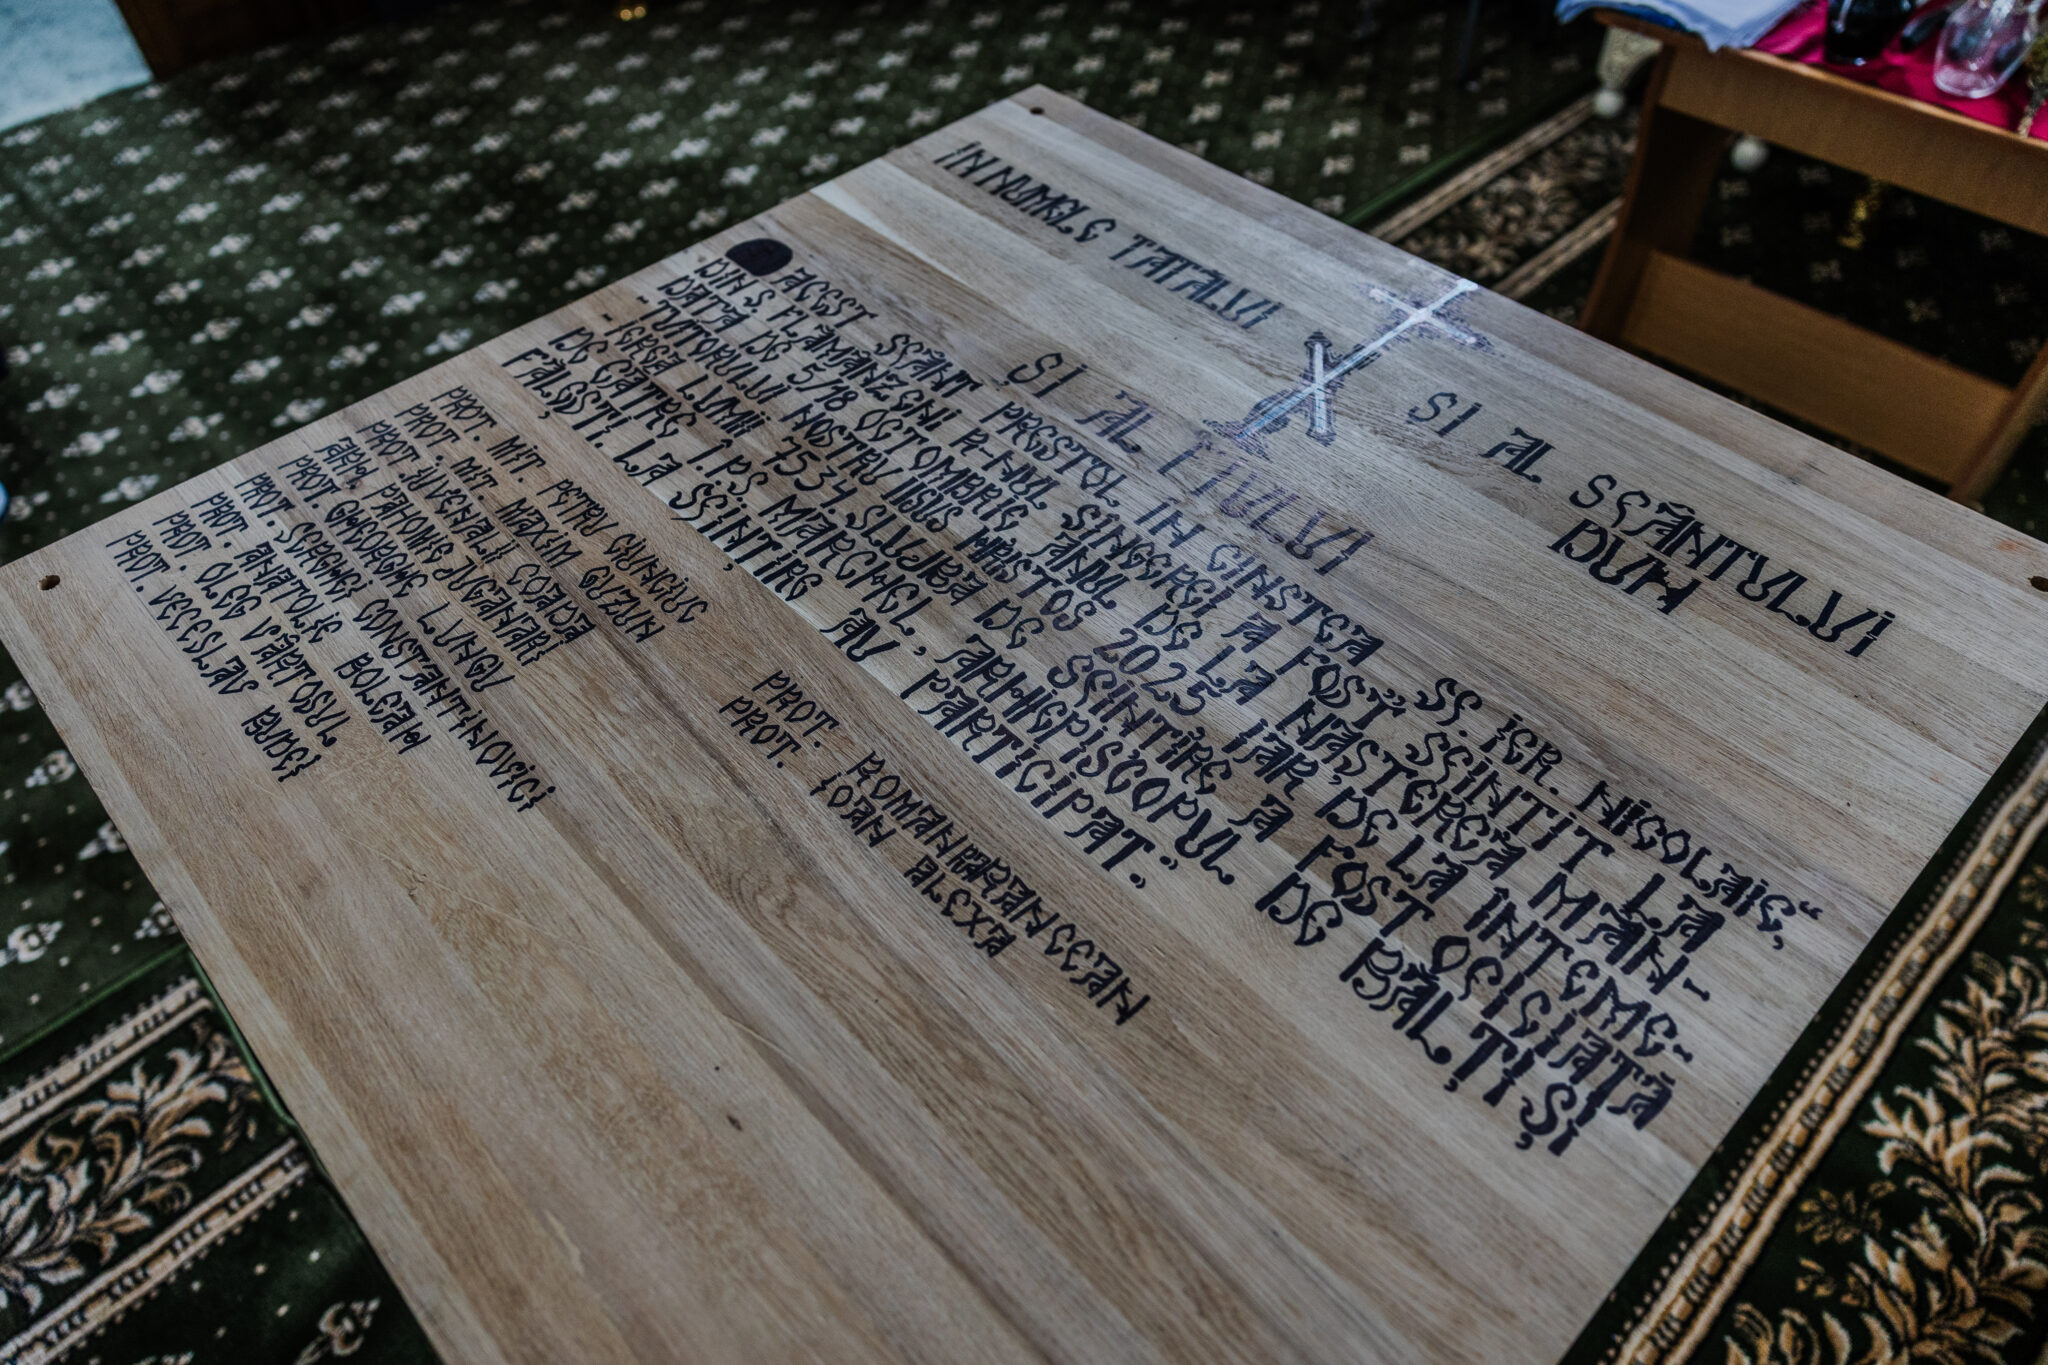 ÎN NUMELE TATĂLUI
ȘI AL FIULUI
ȘI AL SFÂNTULUI
DUH
ACEST SFÂNT PRESTOL ÎN CINSTEA „SF. IER. NICOLAIE,“
DIN S. FLĂMÂNZENI R-NUL SÎNGEREI A FOST SFINȚIT LA
DATA DE 5/18 OCTOMBRIE ANUL DE LA NAȘTEREA MÂN-
-TUITORULUI NOSTRU IISUS HRISTOS 2025 IAR DE LA ÎNTEME-
-IEREA LUMII 7534. SLUJBA DE SFINȚIRE A FOST OFICIATĂ
DE CĂTRE Î.P.S. MARCHEL, ARHIEPISCOPUL DE BĂLȚI ȘI
FĂLEȘTI. LA SFINȚIRE AU PARTICIPAT:
PROT. MIT. PETRU
PROT. MIT. MAXIM
PROT. IUVENALI
ARH. PAHOMIE
PROT. GHEORGHE LUNGU
PROT. SERGHEI CONSTANTINOVICI
PROT. ANATOLIE BOLGAN
PROT. OLEG VÂRTOSUL
PROT. VECESLAV
PROT. ROMAN
PROT. IOAN ALEXA